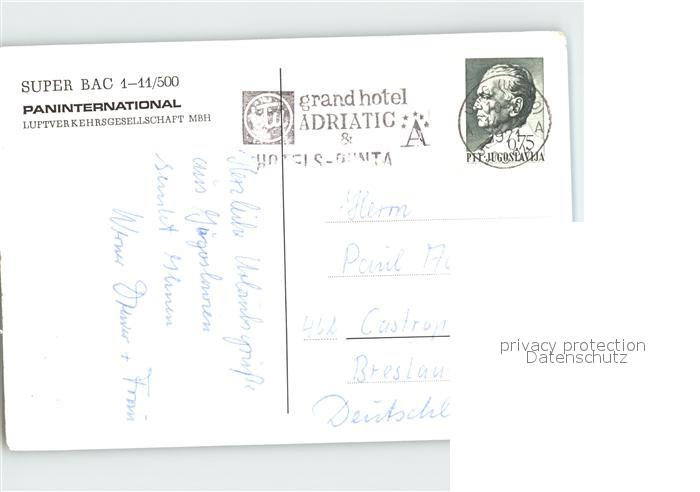 SUPER BAC 1-11/500
PANINTERNATIONAL
LUFTVERKEHRSGESELLSCHAFT MBH
grand hotel
ADRIATIC
&
HOTELS-PUNTA
A
1971
A
0.75
PTT-JUGOSLAVIJA
Herzliche Urlaubsgrüße
aus Jugoslawien
sendet Ihnen
Werner + Frau
Herrn
Paul
462 Castrop
Breslau
Deutschl
privacy protection
Datenschutz